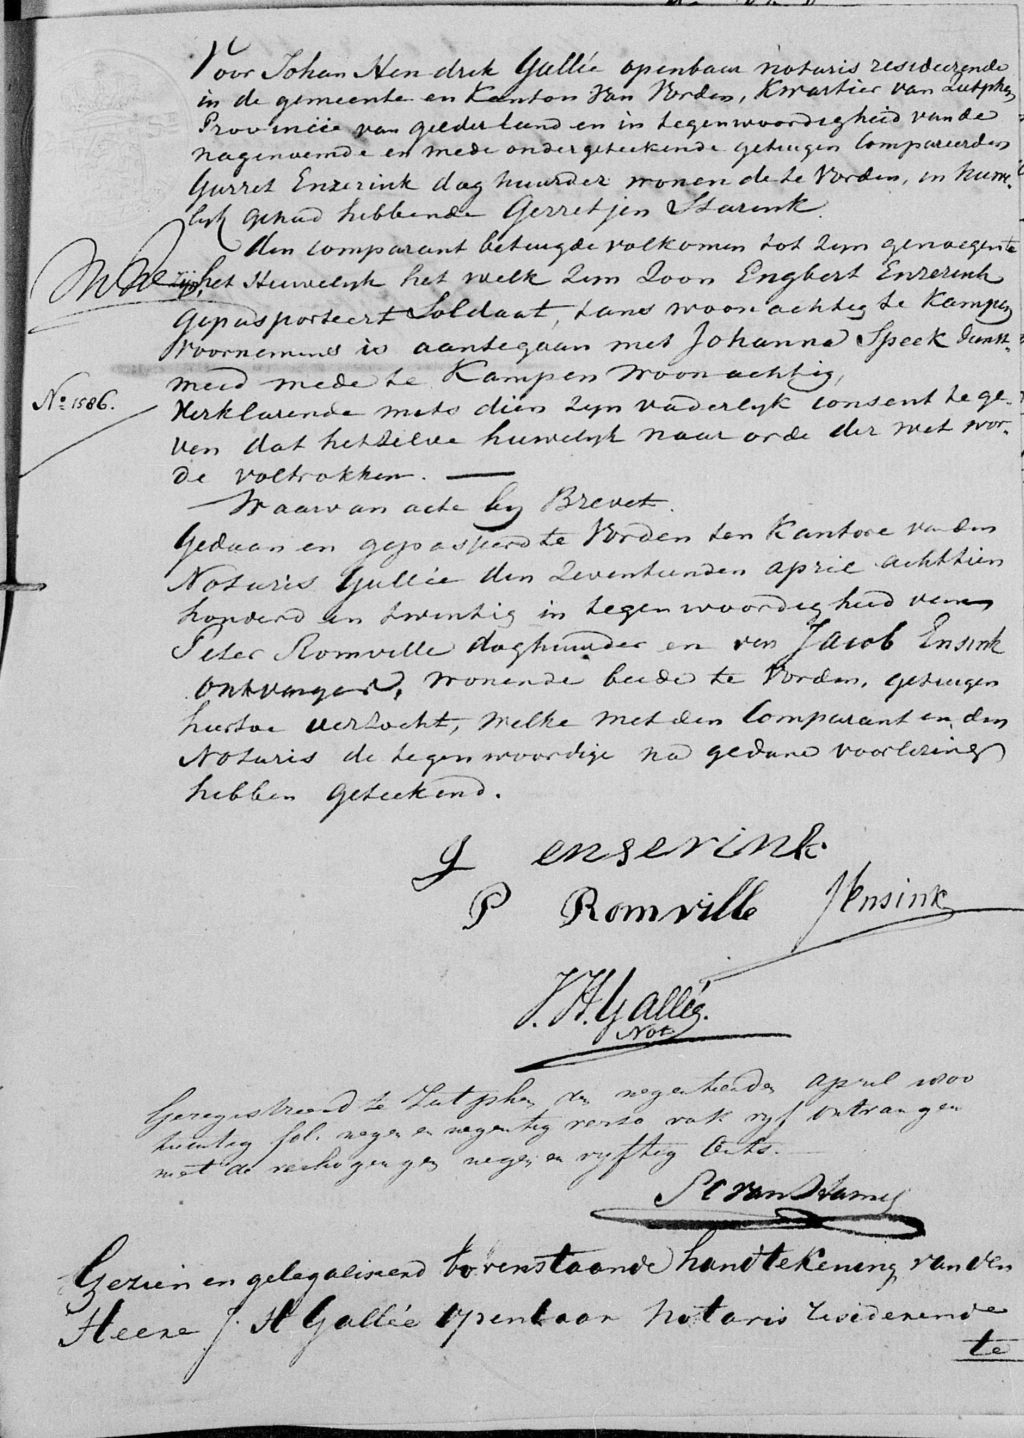 Voor Johan Hendrik Gallée openbaar notaris resideerende
in de gemeente en Kanton van Vorden, Kwartier van Zutphen
Provincie van gelderland en in tegenwoordigheid van de
nagenoemde en mede ondergeteekende getuigen Compareerden
Garret Enzerink daghuurder wonende te Vorden, in huwe-
lijk gehad hebbende Gerretjen Starink.
den Comparant betuigde volkomen tot zyn genoegente
zijn, het Huwelyk het welk zyn Zoon Engbert Enzerink
gepasporteert Soldaat, tans woonachteg te Kampen
voornemens is aantegaan met Johanna Speek dienst-
meid mede te Kampen Woonachtig,
Verklarende mets dien zyn vaderlyk consent te ge-
ven dat hetzelve huwelyk naar orde der wet wor-
de voltrokken.
No. 1586.
Waarvan acte by Brevet.
Gedaan en gepasseerd te Vorden ten Kantore van den
Notaris Gallée den zeventienden april achttien
honderd en twentig in tegenwoordigheid van
Peter Romville daghuurder en van Jacob Ensink
Ontvanger, wonende beide te Vorden, getuigen
hiertoe verzocht, welke met den Comparant en den
Notaris de tegenwoordige na gedane voorlezing
hebben geteekend.
g enserink
P Romville JEnsink
J. H. Gallée.
Not
Geregistreerd te Zutphen den negentienden april 1800
twentig fol. negen en negentig verso vak vyf ontvangen
met de verhogingen negen en vyftig Cents.
Gezien en gelegaliseerd bovenstaande handtekening van den
Heere J. H Gallée openbaar notaris resideerende
te